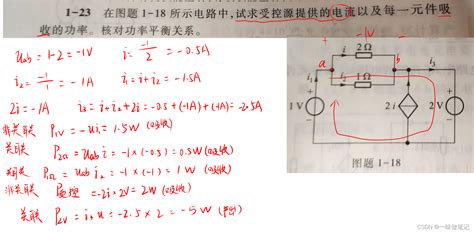 1-23 在图题 1-18 所示电路中,试求受控源提供的电流以及每一元件吸
收的功率。核对功率平衡关系。
Uab = 1-2 = -1V  i = -1/2 = -0.5A
i₂ = -1/1 = -1A  i₁ = i + i₂ = -1.5A
2i = -1A  i₃ = i + i₂ + 2i = -0.5 + (-1A) + (-1A) = -2.5A
非关联 P1V = -ui₁ = 1.5W (吸收)
关联 P2Ω = Uab i = -1 × (-0.5) = 0.5W (吸收)
关联 P1Ω = Uab i₂ = -1 × (-1) = 1W (吸收)
非关联 P受控 = -2i × 2V = 2W (吸收)
关联 P2V = i₃ u = -2.5 × 2 = -5W (产出)
-1V
i 2Ω
a b
i₁ i₂ 1Ω i₃
1 V 2i 2 V
图题 1-18
CSDN @一啵做笔记